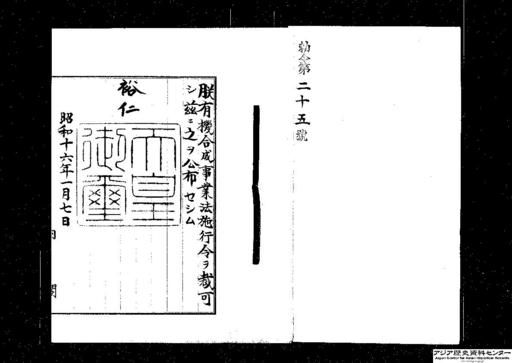 勅令第二十五號
朕有機合成事業法施行令ヲ裁可
シ茲ニ之ヲ公布セシム
裕仁
天皇御璽
昭和十六年一月七日
内閣
アジア歴史資料センター
Japan Center for Asian Historical Records